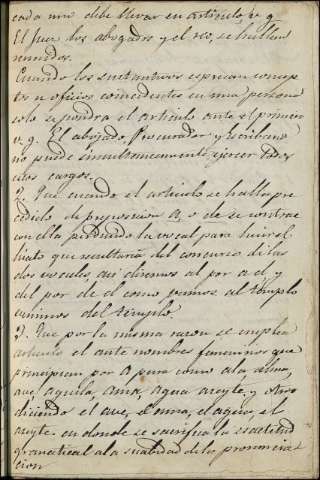 cada uno debe llevar su articulo v. g.
El Juez los abogados y el reo, se hallan
reunidos.
Cuando los sustantivos espresan concep
tos u oficios coincidentes en una persona
solo se pondra el articulo ante el primero
v. g. El abogado, Procurador y escribano
no puede simultaneamente ejercer tres
cargos.
Que cuando el articulo se halla pre
cedido de preposicion A, o de se contrae
con ella perdiendo la vocal para huir el
hiato que resultaria del concurso de las
dos vocales, asi diremos al por a el, y
del por de el como vamos al templo
venimos del templo.
Que por la misma razon se emplea
articulo el ante nombres femeninos que
principian por A pura como ala, alma,
ave, aguila, ama, agua, aceyte y otros
diciendo el ave, el ama, el agua, el
aceyte en donde se sacrifica la esactitud
gramatical a la suavidad de la pronuncia
cion